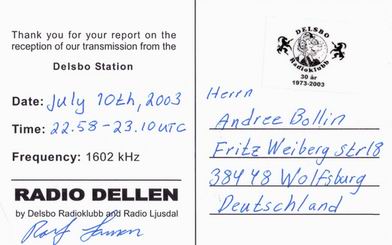 Thank you for your report on the
reception of our transmission from the
Delsbo Station
Date: July 10th, 2003
Time: 22.58-23.10 UTC
Frequency: 1602 kHz
RADIO DELLEN
by Delsbo Radioklubb and Radio Ljusdal
DELSBO
Radioklubb
30 år
1973-2003
Herrn
Andree Bollin
Fritz Weiberg str 18
38448 Wolfsburg
Deutschland